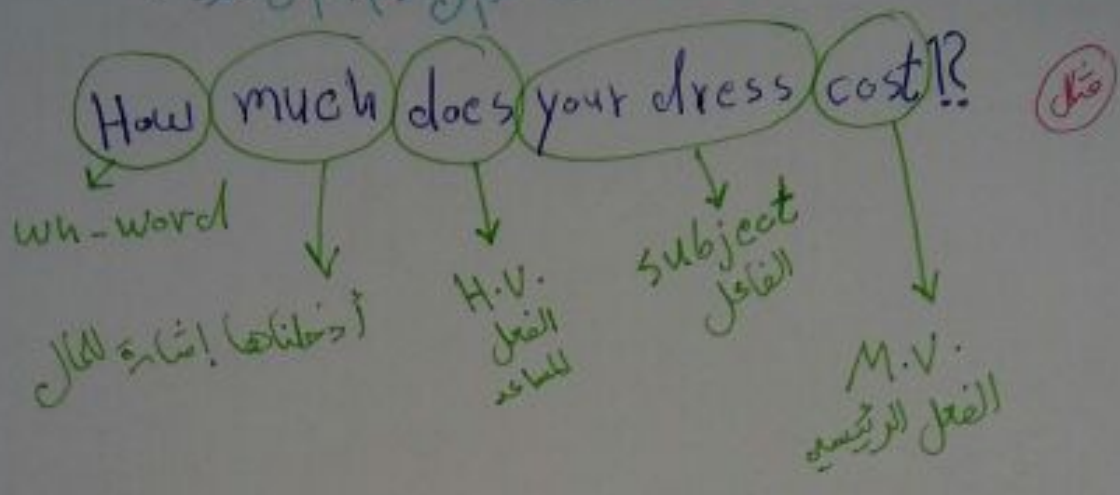 How much does your dress cost!?
مثل
wh-word
أدخلناها إشارة للمال
H.V.
الفعل
المساعد
subject
الفاعل
M.V.
الفعل الرئيسي